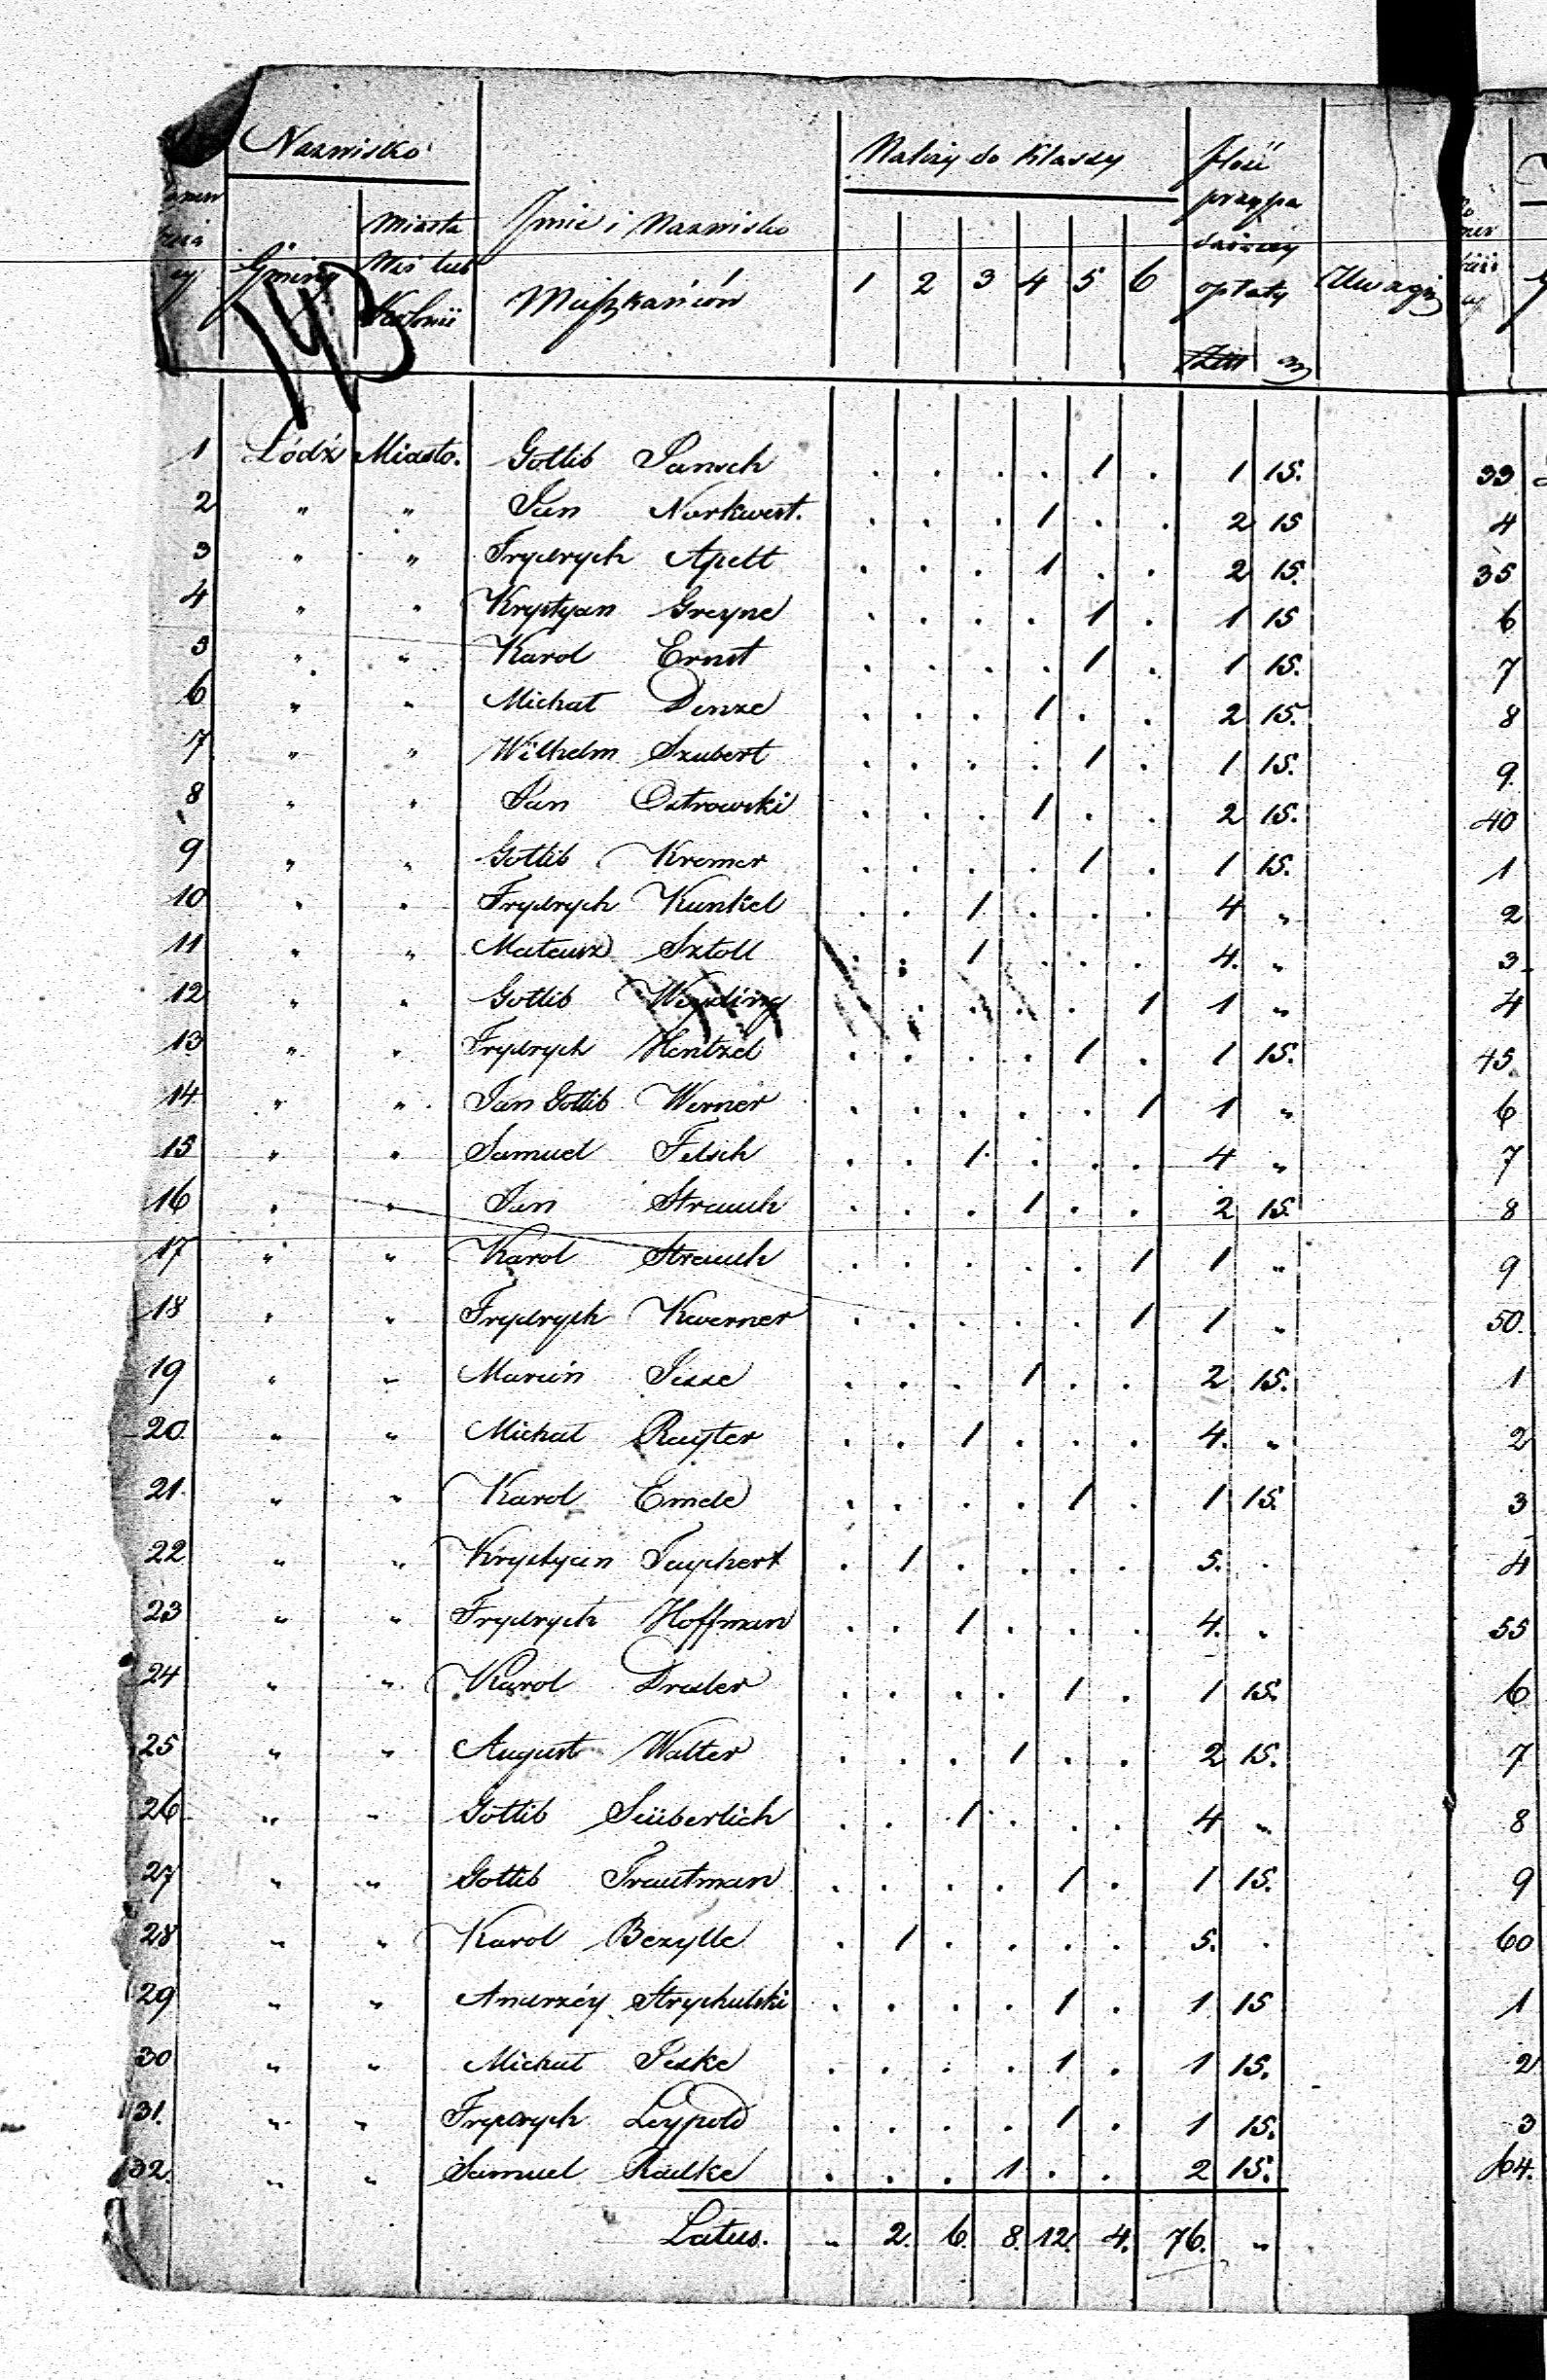 Nazwisko
Gminy
Miasta
Wsi lub
Kolonii
Jmie i Nazwisko
Mieszkańców
Należy do Klassy
1 2 3 4 5 6
Jlość
przypa
daiącey
opłaty
Uwagi
143
1 Łódź Miasto. Gotlib Pansch . . . . 1 . 1 15.
2 " " Jan Norkwest. . . . 1 . . 2 15
3 " " Frydrych Apelt . . . 1 . . 2 15.
4 " " Krystyan Greyne . . . . 1 . 1 15
5 " " Karol Ernst . . . . 1 . 1 15.
6 " " Michał Denze . . . 1 . . 2 15.
7 " " Wilhelm Szubert . . . . 1 . 1 15.
8 " " Jan Ostrowski . . . 1 . . 2 15.
9 " " Gotlib Kremer . . . . 1 . 1 15.
10 " " Frydrych Kunkel . . 1 . . . 4 "
11 " " Mateusz Sztoll . . 1 . . . 4. "
12 " " Gotlib . . . . . 1 1 "
13 " " Frydrych Hentzel . . . . 1 . 1 15.
14 " " Jan Gotlib Werner . . . . . 1 1 "
15 " " Samuel Felsch . . 1 . . . 4 "
16 " " Jan Strauch . . . 1 . . 2 15.
17 " " Karol Strauch . . . . . 1 1 "
18 " " Frydrych Kwerner . . . . . 1 1 "
19 " " Marcin . . . 1 . . 2 15.
20 " " Michał Rayter . . 1 . . . 4. "
21. " " Karol Emde . . . . 1 . 1 15.
22 " " Krystyan Taychert . 1 . . . . 5. .
23 " " Frydrych Hoffman . . 1 . . . 4. .
24 " " Karol Dresler . . . . 1 . 1 15.
25 " " August Walter . . . 1 . . 2 15.
26 " " Gotlib Seüberlich . . 1 . . . 4 "
27 " " Gotlib Trautman . . . . 1 . 1 15.
28 " " Karol Bezylle . 1 . . . . 5. .
29 " " Andrzéy Strychulski . . . . 1 . 1 15
30 " " Michał Peske . . . . 1 . 1 15.
31. " " Frydrych Leypold . . . . 1 . 1 15.
32. " " Samuel Radke . . . 1 . . 2 15.
Latus. " 2. 6. 8. 12. 4. 76. "
33
4
35
6
7
8
9.
40
1
2
3
4
45.
6
7
8
9
50.
1
2
3
4
55
6
7
8
9
60
1
2
3
64.